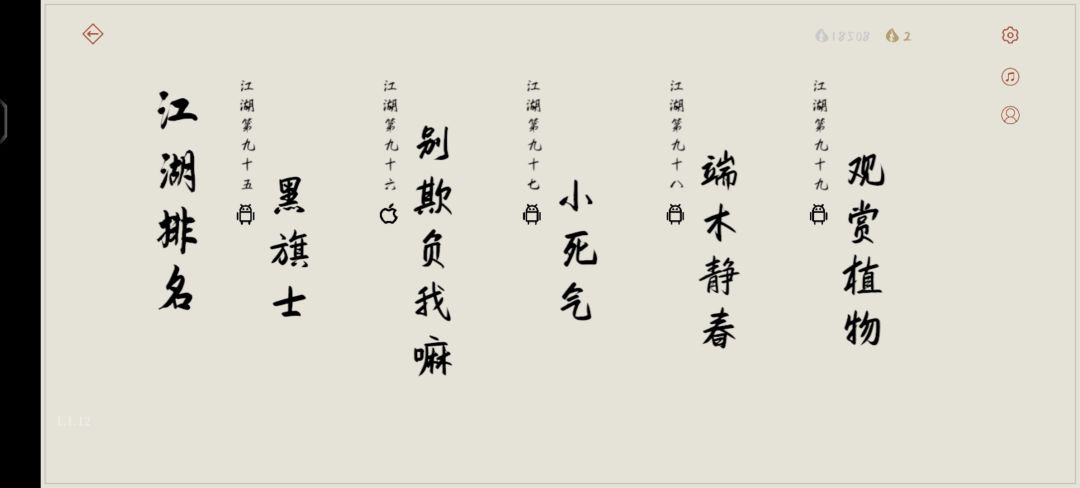 18208
2
江湖排名
江湖第九十五
黑旗士
江湖第九十六
别欺负我嘛
江湖第九十七
小死气
江湖第九十八
端木静春
江湖第九十九
观赏植物
1.1.12